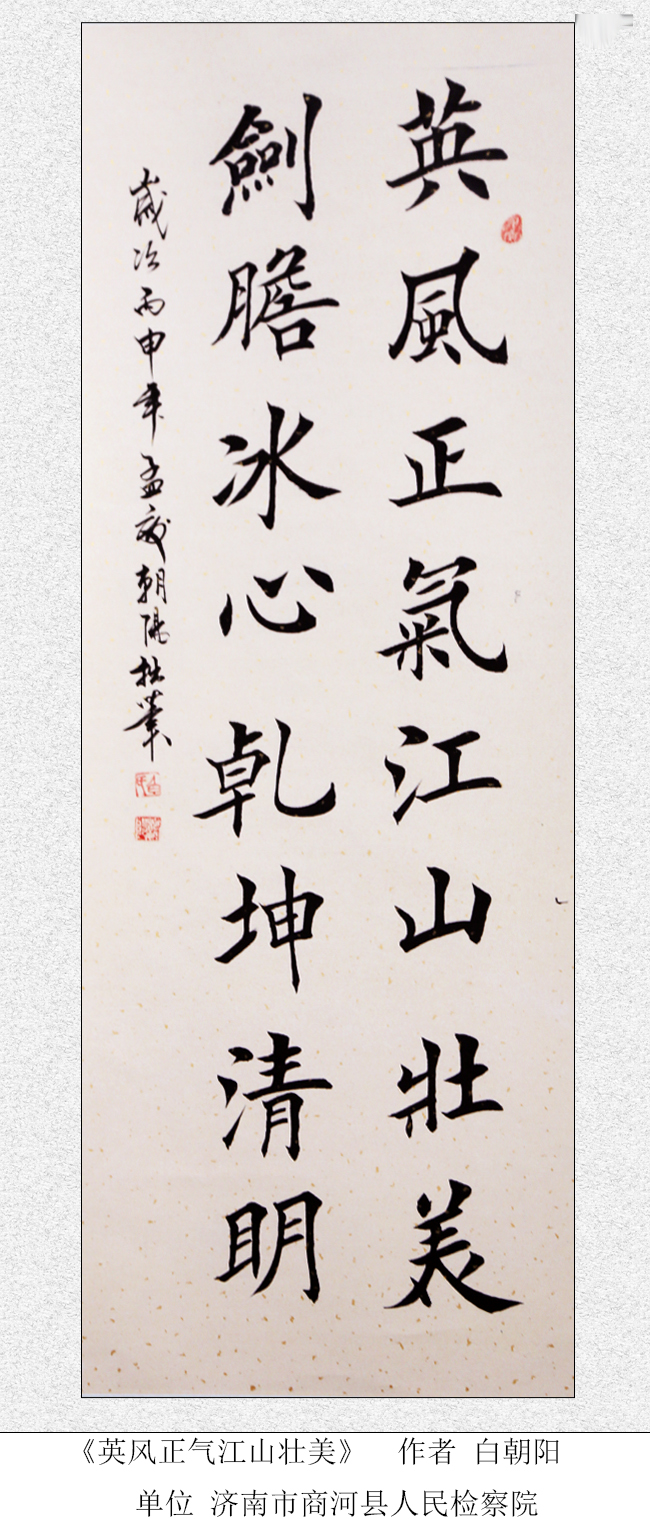 英風正氣江山壯美
劍膽冰心乾坤清明
歲次丙申年孟夏朝陽拙筆
《英风正气江山壮美》 作者 白朝阳
单位 济南市商河县人民检察院